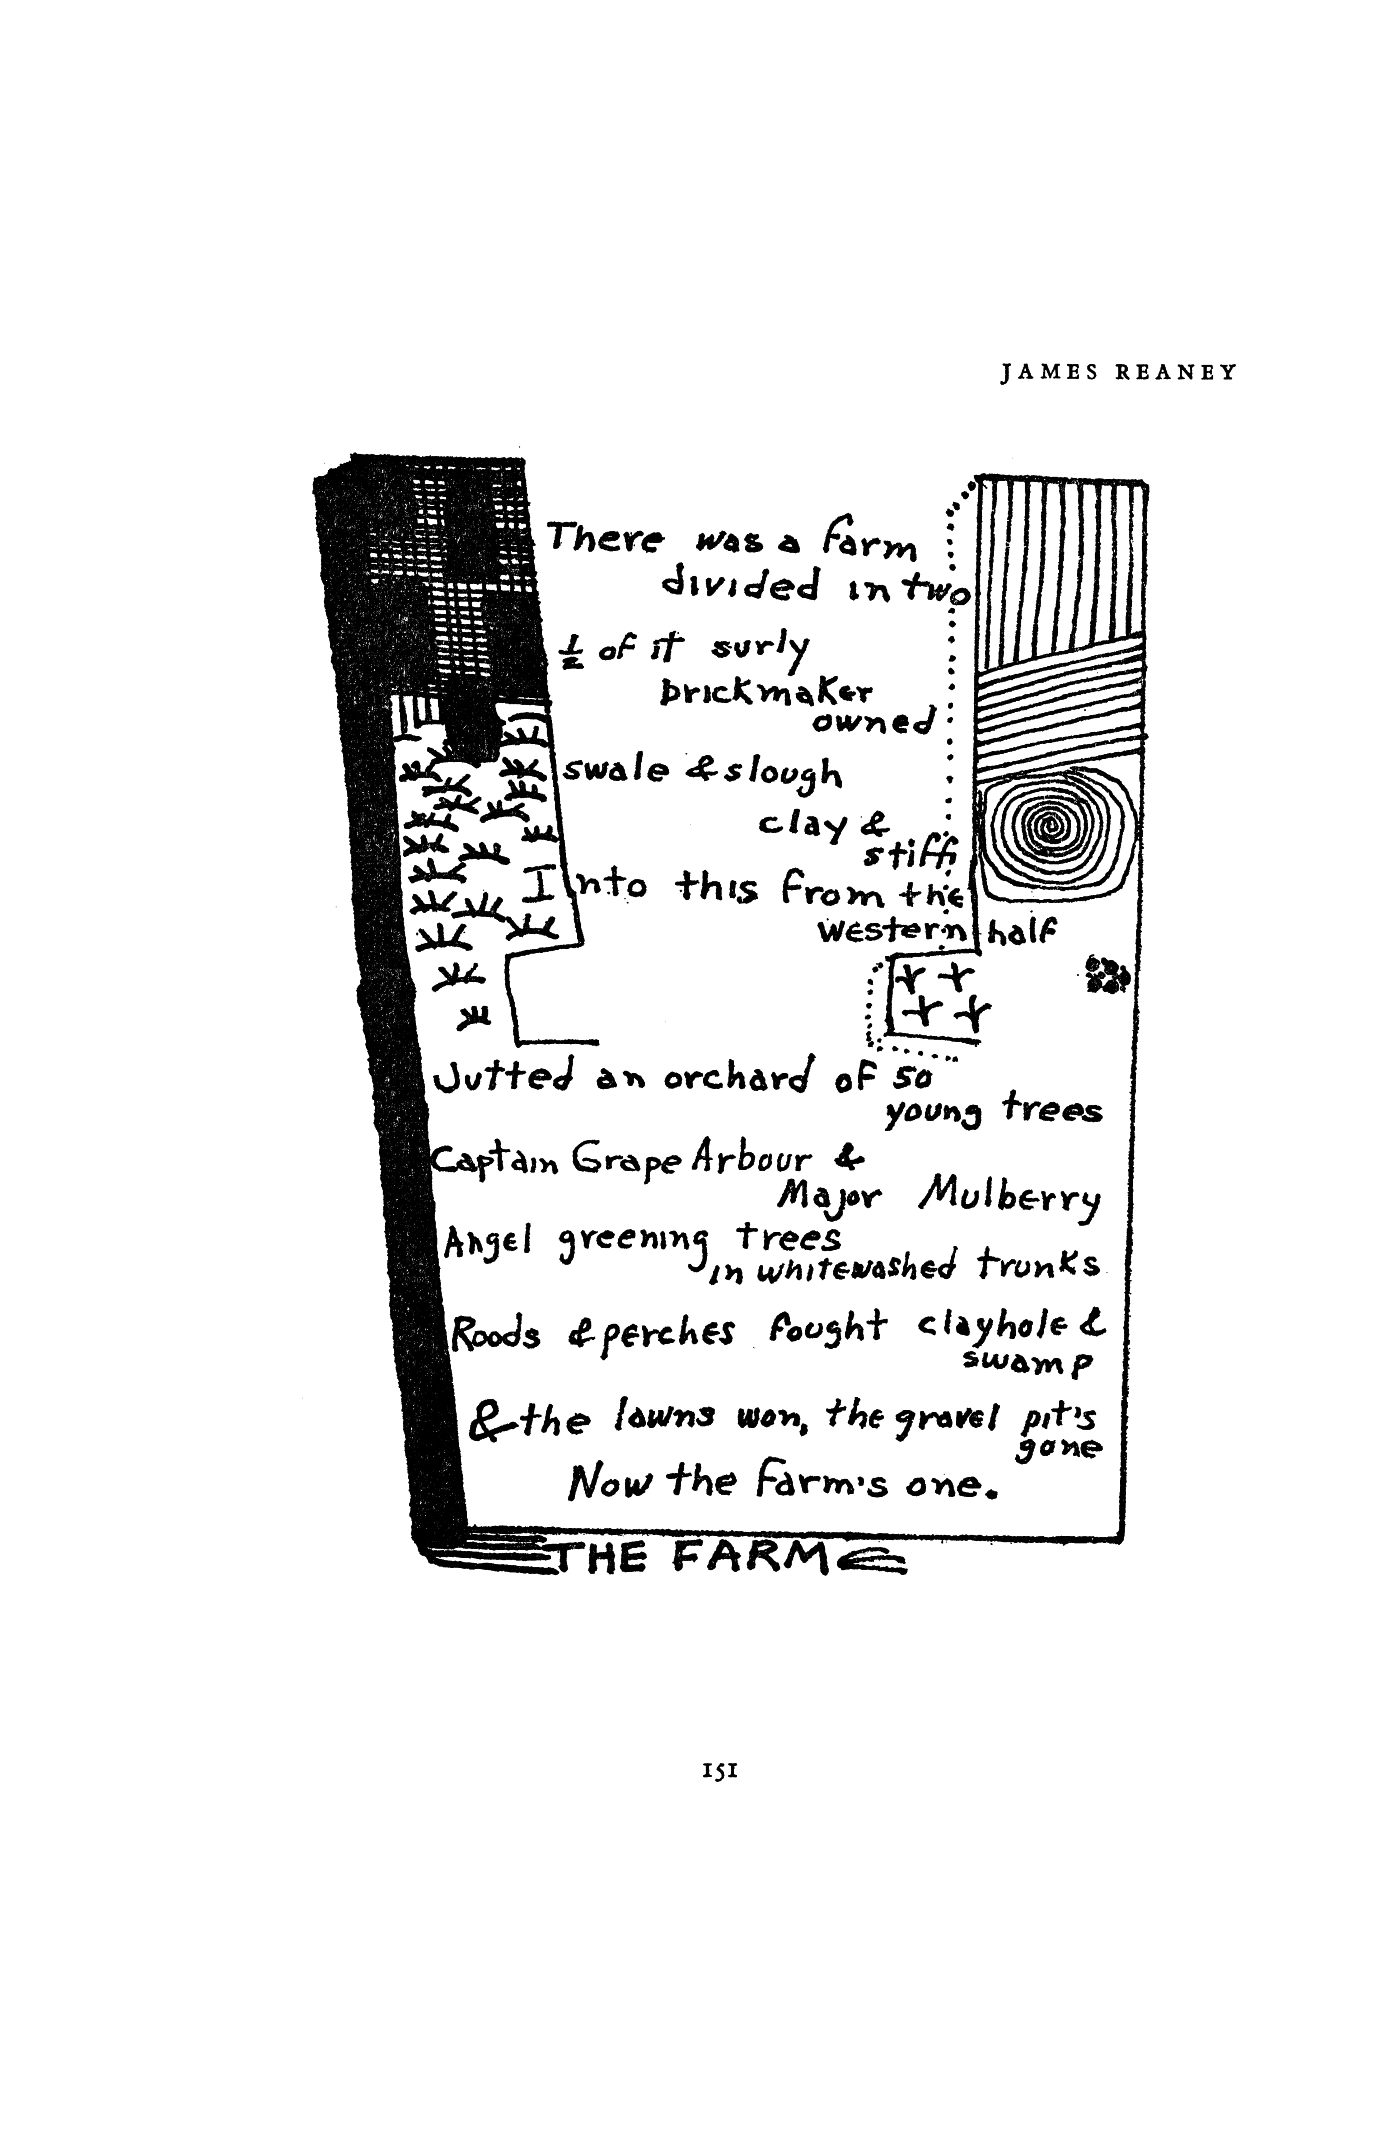 JAMES REANEY
There was a farm
divided in two
½ of it surly
brickmaker
owned
swale & slough
clay &
stiff
Into this from the
western half
Jutted an orchard of 50
young trees
Captain Grape Arbour &
Major Mulberry
Angel greening trees
in whitewashed trunks
Roods & perches fought clayhole &
swamp
& the lawns won, the gravel pit's
gone
Now the farm's one.
THE FARM
151